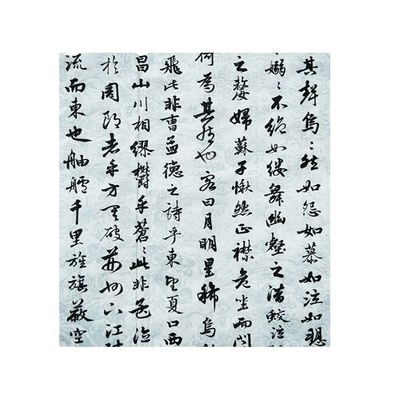 其聲烏〻然如怨如慕如泣如愬
嫋〻不絕如縷舞幽壑之潛蛟泣
之嫠婦蘇子愀然正襟危坐而問
何為其然也客曰月明星稀烏
飛此非曹孟德之詩乎東望夏口西
昌山川相繆鬱乎蒼〻此非孟德
於周郎者乎方其破荊州下江陵
流而東也舳艫千里旌旗蔽空